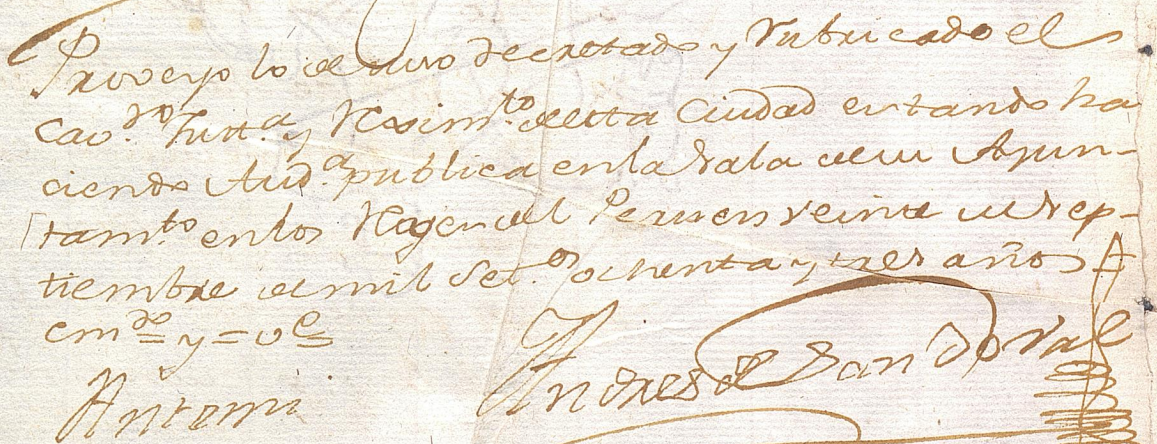 Proveyo lo de suso decretado y rubricado el
Cav.do Just.a y Reximt.o de esta Ciudad estando ha
ciendo Aud.a publica en la Sala de su Ayun-
tamt.o en los Reyes del Peru en veinte de sep-
tiembre de mil Set.os ochenta y tres años
em.do y = v.e
Antoni
Andres de Sandoval